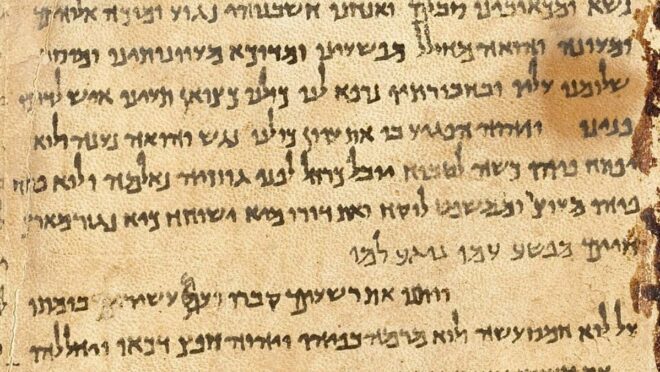 נשא ומכאובינו ואנחנו חשבנוהי נגוע ומוכה
ומעונה והואה מחולל מפשעינו ומדוכא מעוונתינו ומוסר
שלומנו עליו ובחבורתיו נרפא לנו כולנו כצואן תעינו איש לדרכו
פנינו ויהוה הפגיע בו את עוון כולנו נגש והואה נענה ולוא
יפתח פיהו כשה לטבוח יובל כרחל לפני גוזזיה נאלמה ולוא פתח
פיהו מעוצר וממשפט לוקח ואת דורו מיא ישוחח כיא נגזר מארץ
חיים מפשע עמו נוגע למו
ויתנו את רשעים קברו ועם עשיר בומתו
על לוא חמס עשה ולוא מרמה בפיהו ויהוה חפץ דכאו ויחללהו